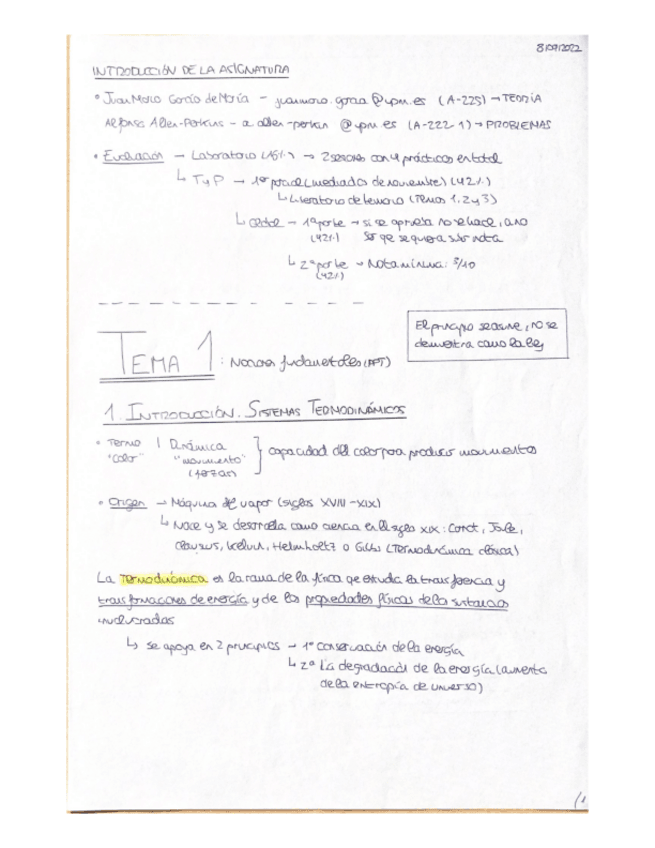 8/09/2022
INTRODUCCIÓN DE LA ASIGNATURA
• Juan Mario García de María - juanmario.garcia@upm.es (A-225) → TEORÍA
Alfonso Allen-Perkins - a allen-perkins @upm.es (A-222-1) → PROBLEMAS
• Evaluación → Laboratorio (16%) → 2 sesiones con 4 prácticas en total
↳ T y P → 1er parcial (mediados de noviembre) (42%)
↳ Liberatorio de temario (Temas 1, 2 y 3)
↳ Global - 1ª parte → si se aprueba no se hace, a no
(42%) ser que se quiera subir nota
↳ 2ª parte → Nota mínima: 3/10
(42%)
El principio se asume, no se
demuestra como la ley
TEMA 1 : Nociones fundamentales (PPT)
1. INTRODUCCIÓN. SISTEMAS TERMODINÁMICOS
• Termo | Dinámica } capacidad del calor para producir movimientos
"calor" "movimiento"
(fuerzas)
• Origen → Máquina de vapor (siglos XVIII-XIX)
↳ Nace y se desarrolla como ciencia en el siglo XIX: Carnot, Joule,
Clausius, Kelvin, Helmholtz o Gibbs (Termodinámica clásica)
La Termodinámica es la rama de la física que estudia la transferencia y
transformaciones de energía y de las propiedades físicas de las sustancias
involucradas
↳ se apoya en 2 principios → 1º conservación de la energía
↳ 2º La degradación de la energía (aumento
de la entropía de universo)